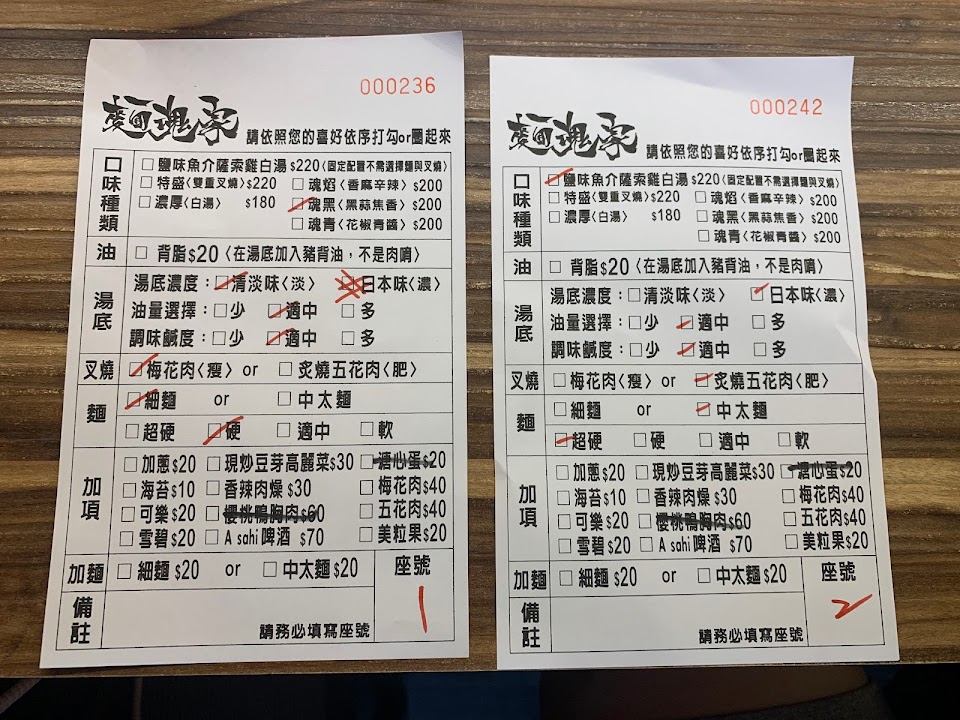 000236
麵魂家
請依照您的喜好依序打勾or圈起來
口味種類
□鹽味魚介薩索雞白湯$220〈固定配置不需選擇麵與叉燒〉
□特盛〈雙重叉燒〉$220 □魂焰〈香麻辛辣〉$200
□濃厚〈白湯〉 $180 □魂黑〈黑蒜焦香〉$200
□魂青〈花椒青醬〉$200
油 □背脂$20〈在湯底加入豬背油，不是肉唷〉
湯底
湯底濃度：□清淡味〈淡〉 □日本味〈濃〉
油量選擇：□少 □適中 □多
調味鹹度：□少 □適中 □多
叉燒 □梅花肉〈瘦〉or □炙燒五花肉〈肥〉
麵
□細麵 or □中太麵
□超硬 □硬 □適中 □軟
加項
□加蔥$20 □現炒豆芽高麗菜$30 □溏心蛋$20
□海苔$10 □香辣肉燥$30 □梅花肉$40
□可樂$20 □櫻桃鴨胸肉$60 □五花肉$40
□雪碧$20 □Asahi啤酒 $70 □美粒果$20
加麵 □細麵$20 or □中太麵$20
座號
1
備註
請務必填寫座號
000242
麵魂家
請依照您的喜好依序打勾or圈起來
口味種類
□鹽味魚介薩索雞白湯$220〈固定配置不需選擇麵與叉燒〉
□特盛〈雙重叉燒〉$220 □魂焰〈香麻辛辣〉$200
□濃厚〈白湯〉 $180 □魂黑〈黑蒜焦香〉$200
□魂青〈花椒青醬〉$200
油 □背脂$20〈在湯底加入豬背油，不是肉唷〉
湯底
湯底濃度：□清淡味〈淡〉 □日本味〈濃〉
油量選擇：□少 □適中 □多
調味鹹度：□少 □適中 □多
叉燒 □梅花肉〈瘦〉or □炙燒五花肉〈肥〉
麵
□細麵 or □中太麵
□超硬 □硬 □適中 □軟
加項
□加蔥$20 □現炒豆芽高麗菜$30 □溏心蛋$20
□海苔$10 □香辣肉燥$30 □梅花肉$40
□可樂$20 □櫻桃鴨胸肉$60 □五花肉$40
□雪碧$20 □Asahi啤酒 $70 □美粒果$20
加麵 □細麵$20 or □中太麵$20
座號
2
備註
請務必填寫座號